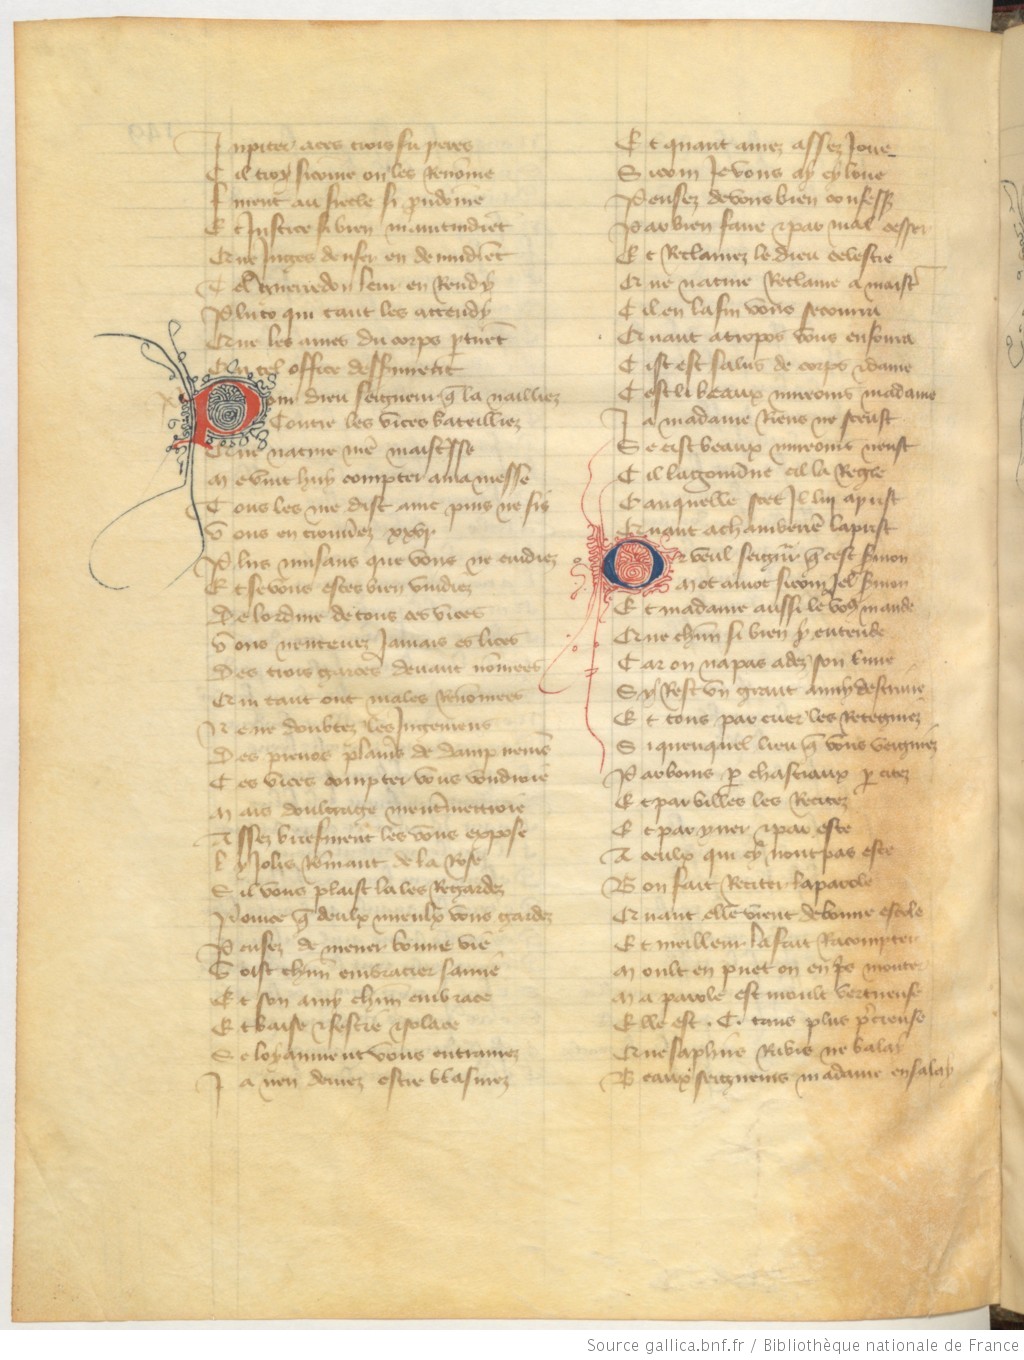 Jupiter a ces trois fu peres
Cil troy sicome on les Renōme
furent au siecle si prudōme
Et Justice si bien maintindrēt
Que Juges denfer en devindrēt
Tel guerredon leur en Rendy
Pluto qui tant les attendy
Que les ames du corps ꝑtirēt
Qu tel office desseruirent
Pour dieu seigneur q̄ la nailliez
Contre les vices batailliez
Que nature nr̄e maistresse
Me vint huy compter a ma messe
Tous les me dist onc puis ne sis
Vous en trouuerez xxvj
Plus nuisans que vous ne cuidiez
Et se vous estes bien vuidiez
De lordure de tous ces vices
Vous nenterez Jamais es lices
Des trois garces deuant nōmees
Qui tant ont males Renōmees
Ne ne doubtez les Jugemens
Des preuos plains de dampnemēs
Ces vices compter vous vouldroie
Mais doultrage mentremettroie
Assez briefment les vous expose
Ly Jolis Rōmant de la Rose
Sil vous plaist la les Regardez
Pource q̄ deulx mieulx vous gardez
Pensez de mener bonne vie
Voist chūn embracier samie
Et son amy chūn embrace
Et baise et festie et solace
Se loyaument vous entramez
Ja nen deuez estre blasmez
Et quant aurez assez Joue
Sicom Je vous ay cy loue
Pensez de vous bien confesser
Par bien faire et par mal cesser
Et Reclamez le dieu celestre
Que nature Reclame a maistr̄
Cil en la fin vous secourra
Quant atropos vous enfourra
Cist est salus de corps et dame
Cest li beaux mireoirs madame
Ja madame Riens ne sceust
Se cist beaux mireoirs neust
Cil la gouuerne cil la Regle
Quant a chamberiere la prist
Or veul seigr̄s q̄ cest sermon
Mot a mot sicom Jel sermon
Et madame aussi le vo9 mande
Que chūn si bien y entende
Car on na pas adez son liure
Sy Rest vn grant anuy descriure
Et tous par cuer les Retegniez
Si quen quel lieu q̄ vous vegniez
Par bours ꝑ chastiaux ꝑ citez
Et par villes les Recitez
Et par yuer et par este
A ceulx qui cy nont pas este
Bon fait Reciter la parole
Quant elle vient de bonne escole
Et meilleur la fait Raconpter
Moult en puet on en pris monter
Ma parole est moult vertueuse
Elle est . C . tans plus p̄cieuse
Que saphirs Rubis ne balay
Beaux seigneurs madame en sa lay